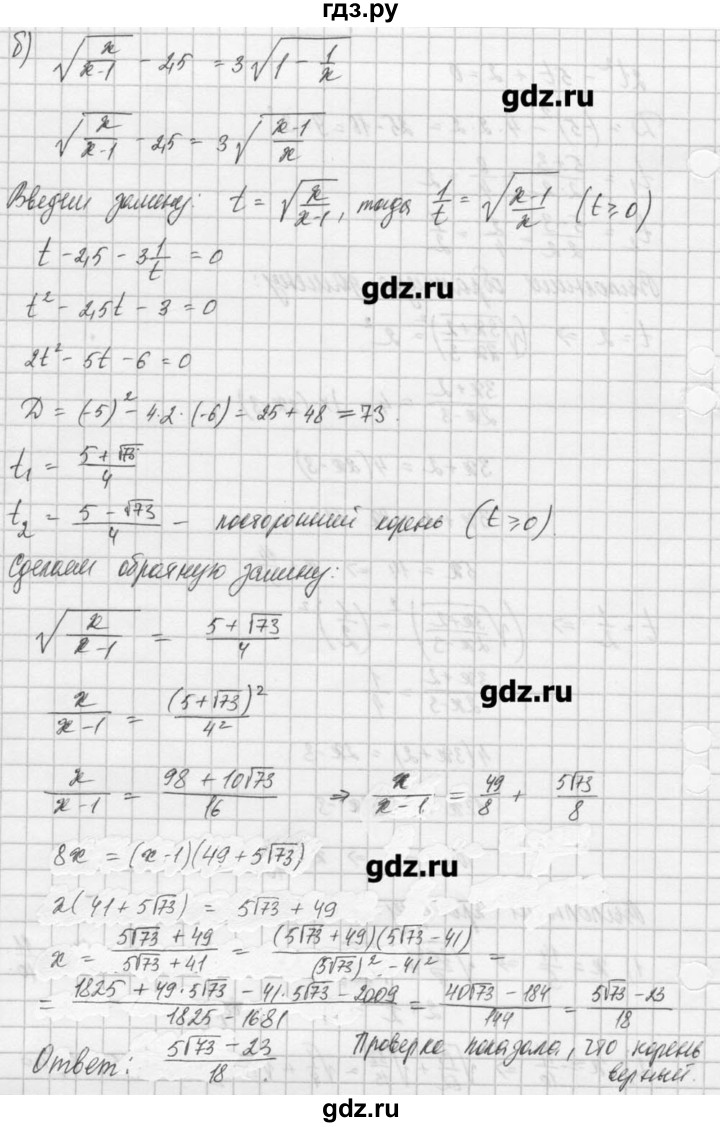 гдз.ру
б) √(x/(x-1)) - 2,5 = 3√(1 - 1/x)
gdz.ru
√(x/(x-1)) - 2,5 = 3√((x-1)/x)
Введем замену: t = √(x/(x-1)), тогда 1/t = √((x-1)/x) (t ≥ 0)
t - 2,5 - 3 1/t = 0
gdz.ru
t² - 2,5t - 3 = 0
2t² - 5t - 6 = 0
D = (-5)² - 4·2·(-6) = 25 + 48 = 73.
t₁ = (5 + √73)/4
t₂ = (5 - √73)/4 - посторонний корень (t ≥ 0).
Сделаем обратную замену:
√(x/(x-1)) = (5 + √73)/4
gdz.ru
x/(x-1) = (5 + √73)²/4²
x/(x-1) = (98 + 10√73)/16 ⇒ x/(x-1) = 49/8 + 5√73/8
8x = (x-1)(49 + 5√73)
gdz.ru
x(41 + 5√73) = 5√73 + 49
x = (5√73 + 49)/(5√73 + 41) = (5√73 + 49)(5√73 - 41)/((5√73)² - 41²) =
= (1825 + 49·5√73 - 41·5√73 - 2009)/(1825 - 1681) = (40√73 - 184)/144 = (5√73 - 23)/18
Ответ: (5√73 - 23)/18. Проверка показала, что корень
верный.
gdz.ru